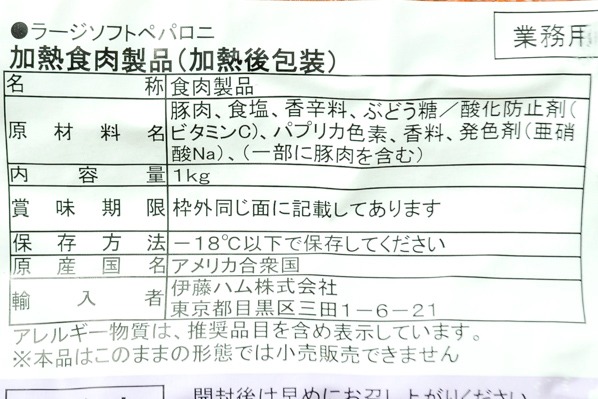 ●ラージソフトペパロニ
業務用
加熱食肉製品(加熱後包装)
名称 食肉製品
原材料名 豚肉、食塩、香辛料、ぶどう糖/酸化防止剤(
ビタミンC)、パプリカ色素、香料、発色剤(亜硝
酸Na)、(一部に豚肉を含む)
内容量 1kg
賞味期限 枠外同じ面に記載してあります
保存方法 -18℃以下で保存してください
原産国名 アメリカ合衆国
輸入者 伊藤ハム株式会社
東京都目黒区三田1-6-21
アレルギー物質は、推奨品目を含め表示しています。
※本品はこのままの形態では小売販売できません
開封後は早めにお召し上がりください